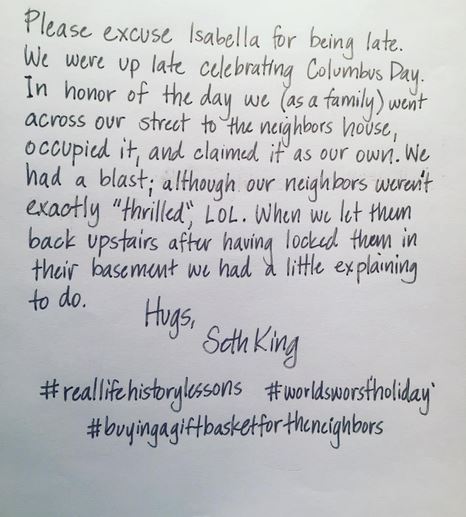 Please excuse Isabella for being late.
We were up late celebrating Columbus Day.
In honor of the day we (as a family) went
across our street to the neighbors house,
occupied it, and claimed it as our own. We
had a blast; although our neighbors weren't
exactly "thrilled", LOL. When we let them
back upstairs after having locked them in
their basement we had a little explaining
to do.
Hugs,
Seth King
#reallifehistorylessons #worldsworst'holiday'
#buyingagiftbasketfortheneighbors